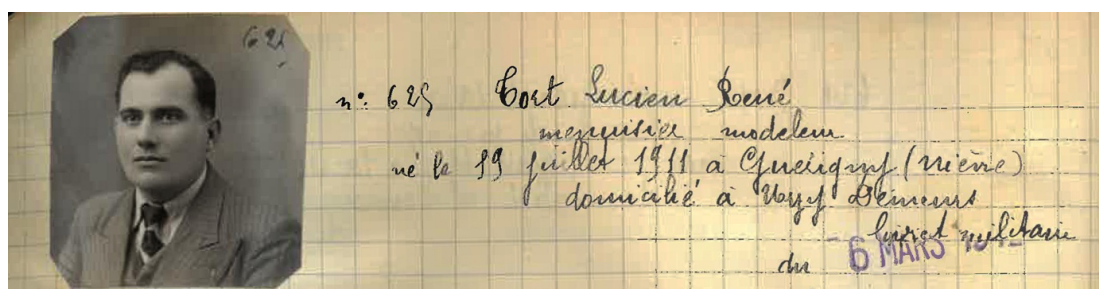 625
n: 625 Tort Lucien René
menuisier modeleur
né le 19 juillet 1911 à Guérigny (Nièvre)
domicilié à
livret militaire
du 6 MARS